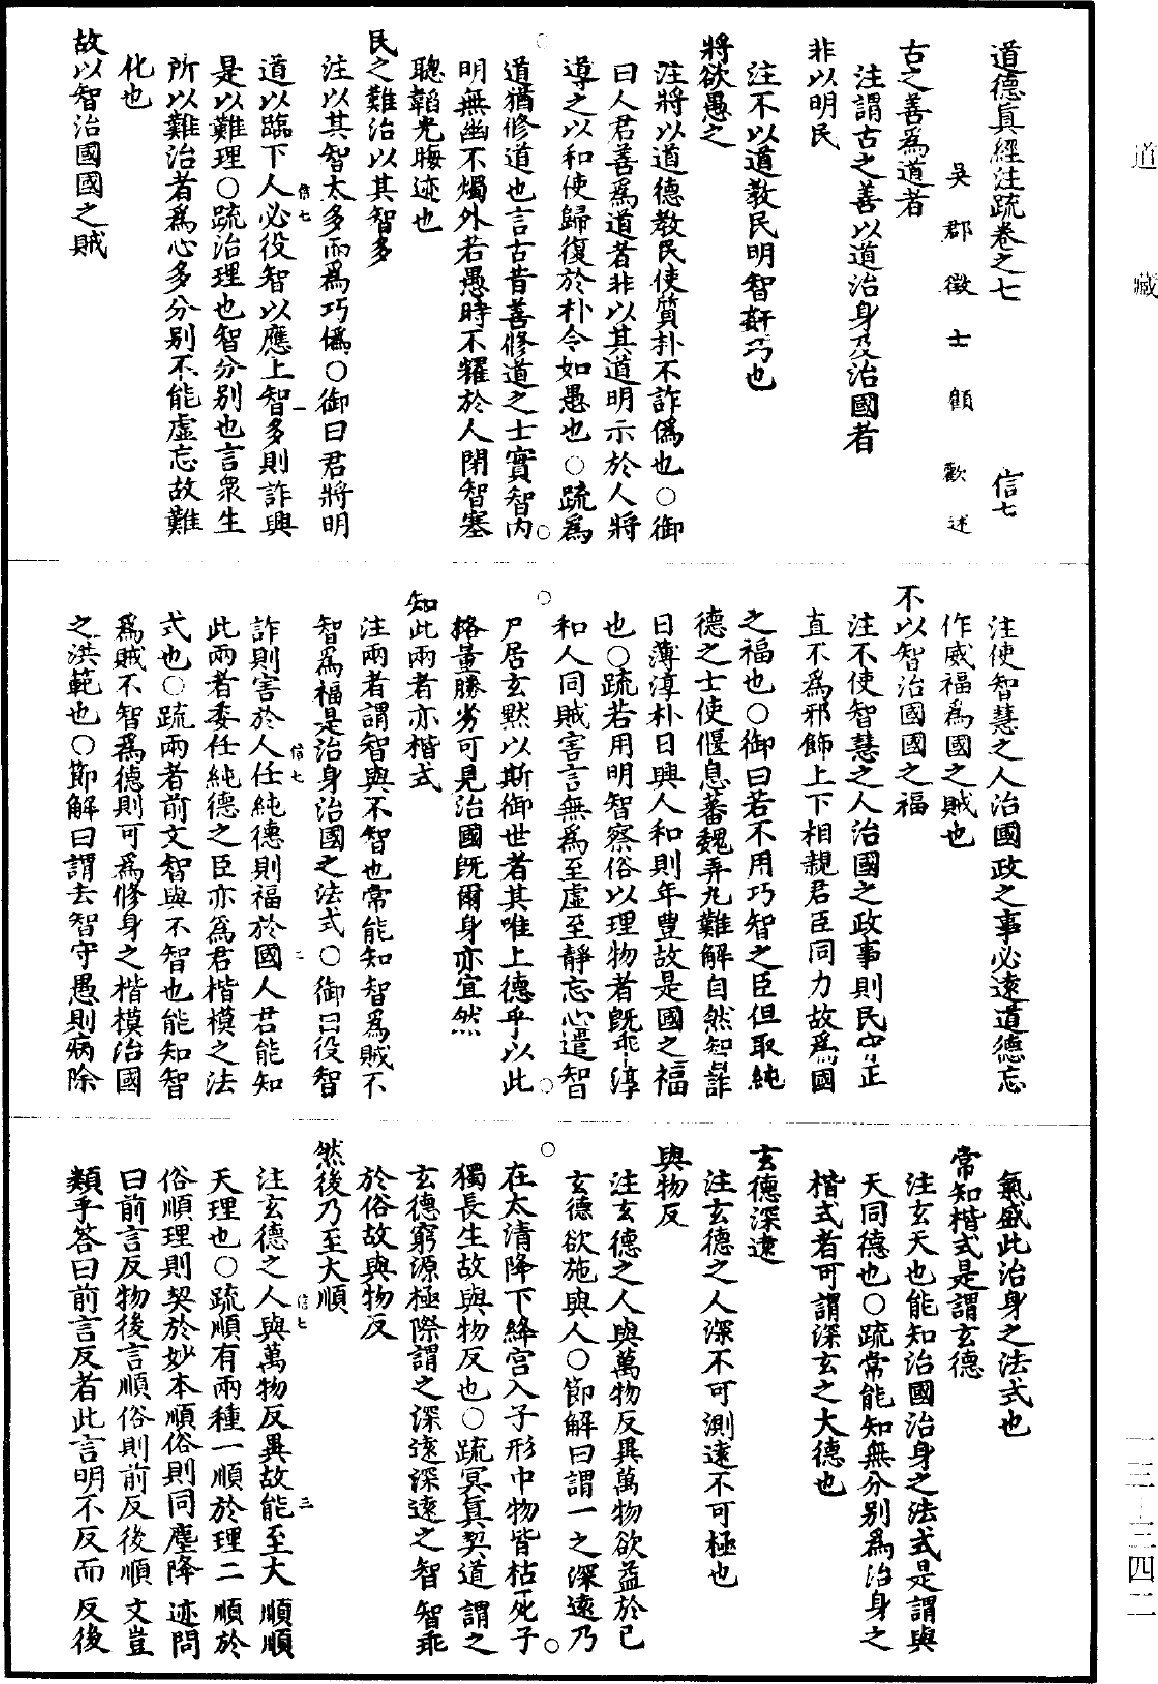 道　藏
道德眞經注疏卷之七　信七
吳郡徵士顧歡述
古之善爲道者
注謂古之善以道治身及治國者
非以明民
注不以道教民明智姧巧也
將欲愚之
注將以道德教民使質朴不詐僞也○御
曰人君善爲道者非以其道明示於人將
導之以和使歸復於朴令如愚也○疏爲
道猶修道也言古昔善修道之士實智内
明無幽不燭外若愚時不耀於人閉智塞
聰韜光晦迹也
民之難治以其智多
注以其智太多而爲巧僞○御曰君將明
信七　一
道以臨下人必役智以應上智多則詐興
是以難理○疏治理也智分别也言衆生
所以難治者爲心多分别不能虛忘故難
化也
故以智治國國之賊
注使智慧之人治國政之事必遠道德忘
作威福爲國之賊也
不以智治國國之福
注不使智慧之人治國之政事則民守正
直不爲邪飾上下相親君臣同力故爲國
之福也○御曰若不用巧智之臣但取純
德之士使偃息蕃魏弄丸難解自然智詐
日薄淳朴日興人和則年豊故是國之福
也○疏若用明智察俗以理物者旣乖淳
和人同賊害言無爲至虛至靜忘心遣智
尸居玄默以斯御世者其唯上德乎以此
挌量勝劣可見治國旣爾身亦宜然
知此兩者亦楷式
注兩者謂智與不智也常能知智爲賊不
智爲福是治身治國之法式○御曰役智
信七　二
詐則害於人任純德則福於國人君能知
此兩者委任純德之臣亦爲君楷模之法
式也○疏兩者前文智與不智也能知智
爲賊不智爲德則可爲修身之楷模治國
之洪範也○節解曰謂去智守愚則病除
氣盛此治身之法式也
常知楷式是謂玄德
注玄天也能知治國治身之法式是謂與
天同德也○疏常能知無分别爲治身之
楷式者可謂深玄之大德也
玄德深遠
注玄德之人深不可測遠不可極也
與物反
注玄德之人與萬物反異萬物欲益於已
玄德欲施與人○節解曰謂一之深遠乃
在太清降下絳宫入子形中物皆枯死子
獨長生故與物反也○疏冥真契道謂之
玄德窮源極際謂之深遠深遠之智智乖
於俗故與物反
然後乃至大順
信七　三
注玄德之人與萬物反異故能至大順順
天理也○疏順有兩種一順於理二順於
俗順理則契於妙本順俗則同塵降迹問
曰前言反物後言順俗則前反後順文豈
類乎答曰前言反者此言明不反而反後
一三—三四二